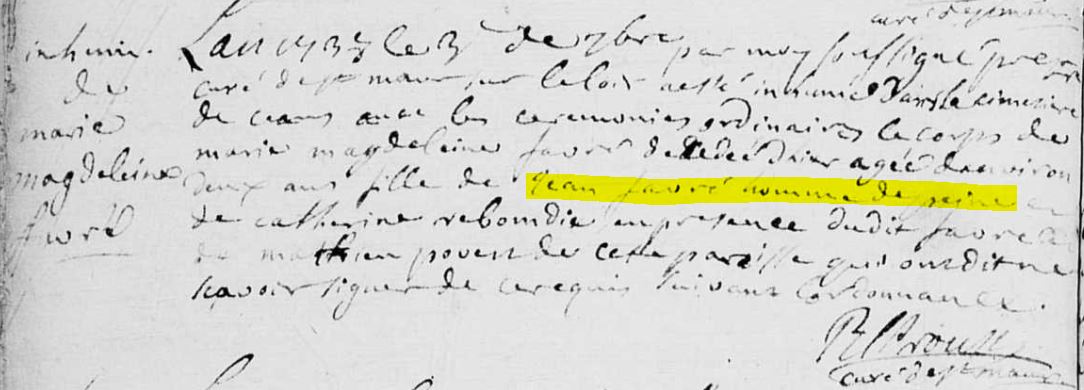 inhum.
de
marie
magdeleine
favré
Lan 1737 le 3 de 7bre par moy soussigné prestre
curé de st maur sur le loir a esté inhumé dans le cimetiere
de ceans avec les ceremonies ordinaires le corps de
marie magdeleine favré decedée d'hier agée d'environ
deux ans fille de jean favré homme de peine et
de catherine rebondie en presence dudit favré et
de mathieu de cette paroisse qui ont dit ne
savoir signer de ce requis suivant l'ordonnance.
curé de st maur